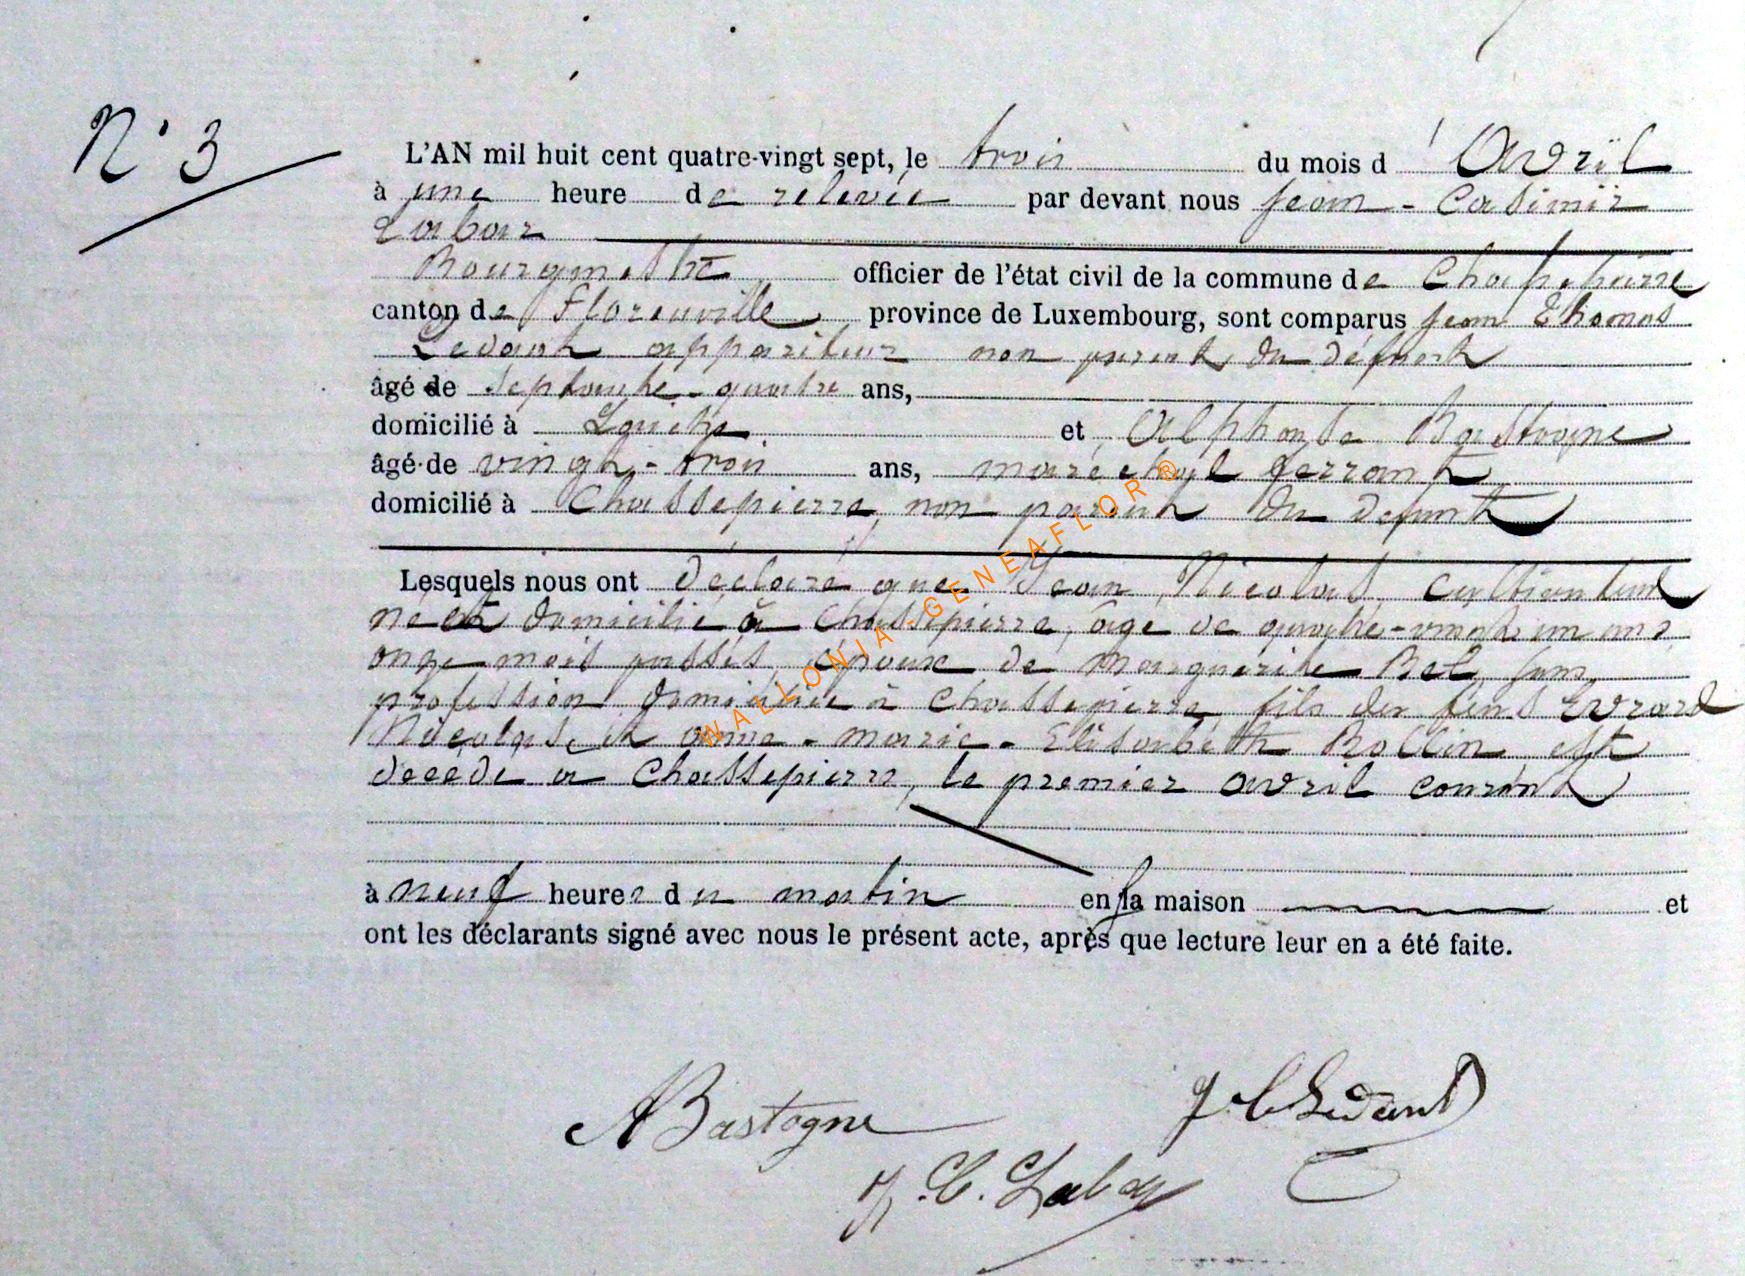 N° 3
L'AN mil huit cent quatre-vingt sept, le trois du mois d'Avril
à une heure de relevée par devant nous Jean-Casimir
Labar
Bourgmestre officier de l'état civil de la commune de Chassepierre
canton de Florenville province de Luxembourg, sont comparus Jean Thomas
Ledant appariteur non parent du défunt
âgé de septante-quatre ans,
domicilié à et Alphonse Bastogne
âgé de vingt-trois ans, maréchal ferrant
domicilié à Chassepierre, non parent du defunt
Lesquels nous ont déclaré que Jean Nicolas, cultivateur
né et domicilié à Chassepierre, âgé de quatre-vingt un ans
onze mois passés, époux de Marguerite Bel, sans
profession domiciliée à Chassepierre, fils des feus Evrard
Nicolas, et anne-marie-Elisabeth Rollin, est
décédé à Chassepierre, le premier avril courant
à neuf heures du matin en sa maison et
ont les déclarants signé avec nous le présent acte, après que lecture leur en a été faite.
ABastogne
J. t Ledant
J. C. Labar
WALLONIA-GENEAFLOR®